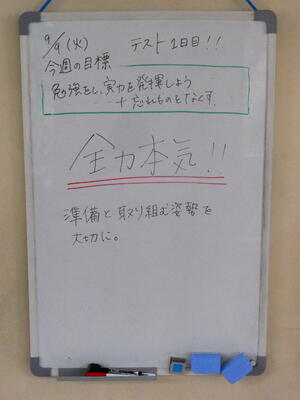 9/9(火) テスト1日目!!
今週の目標
勉強をし、実力を発揮しよう
+忘れものをなくす。
全力本気!!
準備と取り組む姿勢を
大切に。